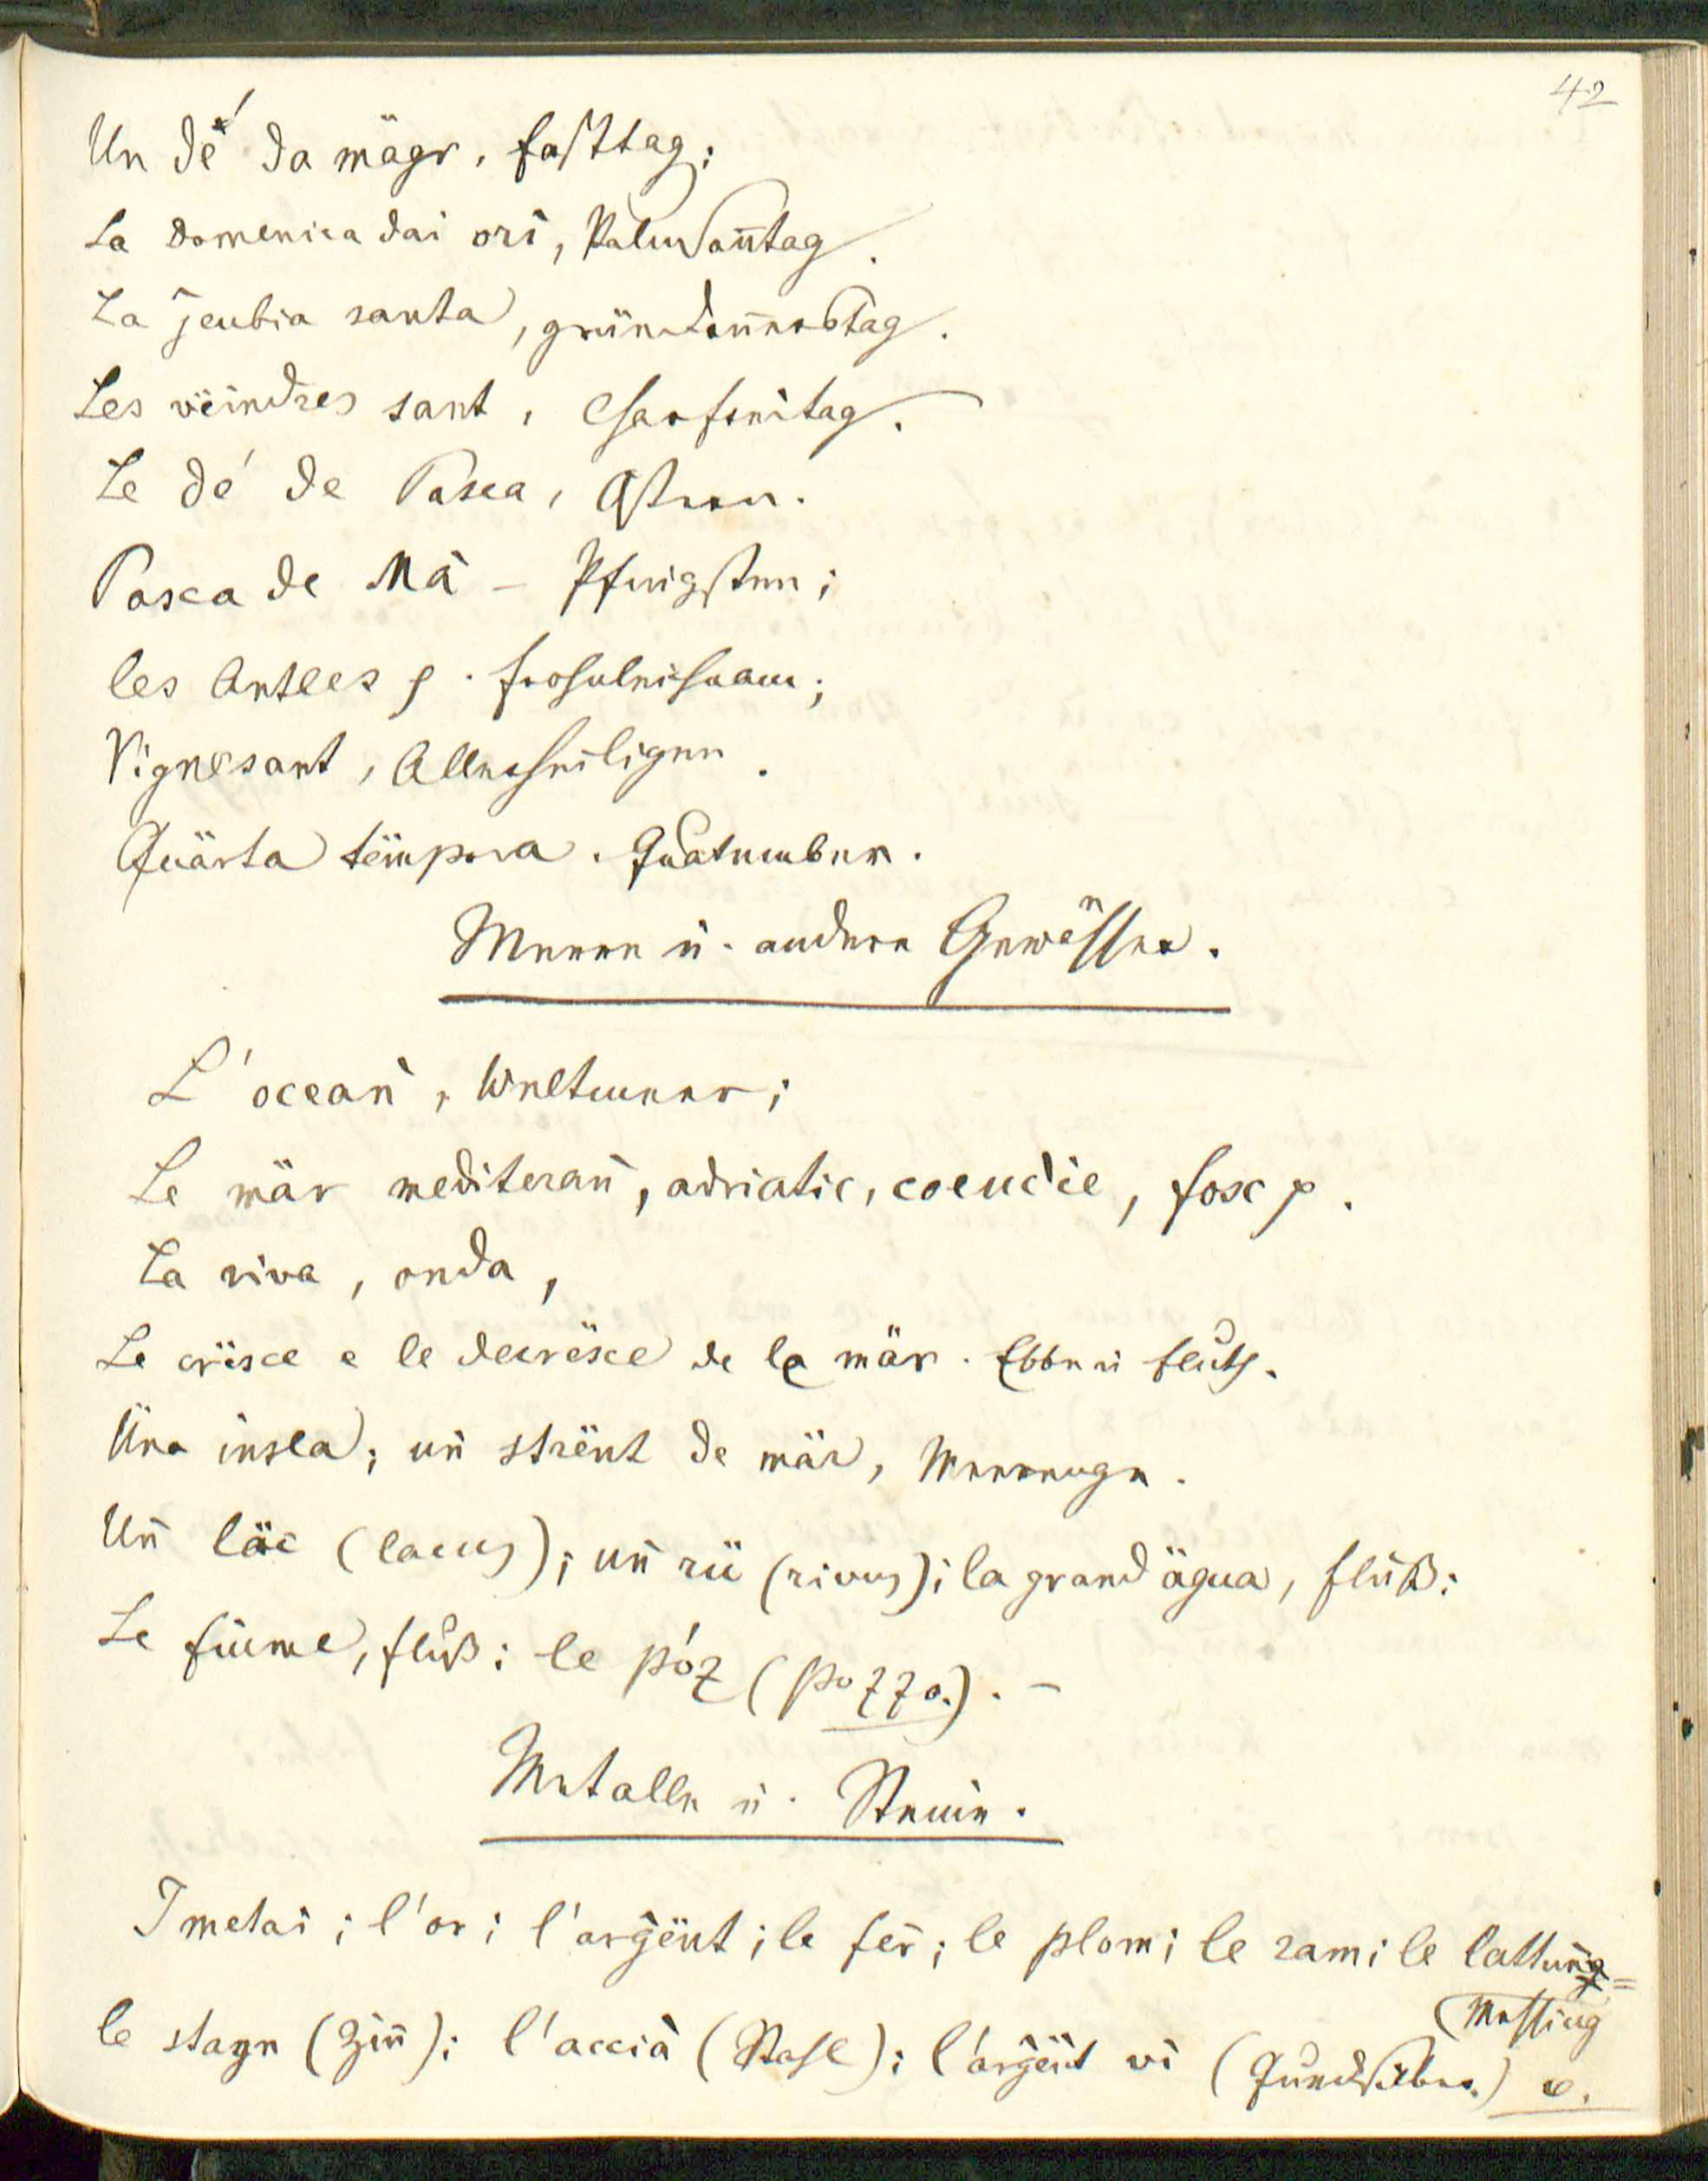 42
Un dé da mägr, Fasttag;
La domenica dai orì, Palmsoñtag.
La jeubia santa, gründoñerstag.
Les vëindres sant, Charfreitag.
Le dé de Pasca, Ostern.
Pasca de Mà - Pfingsten;
les Antles . Frohnleichnam;
Vignesant, Allerheiligen.
Quärta tëmpora. Quatember.
Meere u. andere Gewässer.
L'oceañ, Weltmeer;
Le mär mediterañ, adriatic, , fosc .
La riva, onda,
Le crësce e le decrësce de le mär. Ebbe u Fluth.
Üna insla; uñ strënt de mär, Meerenge.
Uñ läc (lacus); uñ rü (rivus); la grand ägua, Fluß:
Le fiume, Fluß: le póz (pozzo.). -
Metalle u. Steine.
I metai; l'or; l'arg̀ënt; le fer̄; le plom; le ram; le lattuñg=
(Messing
le stagn (Ziñ); l'accià (Stahl); l'arg̀ënt vì (Quecksilber.)